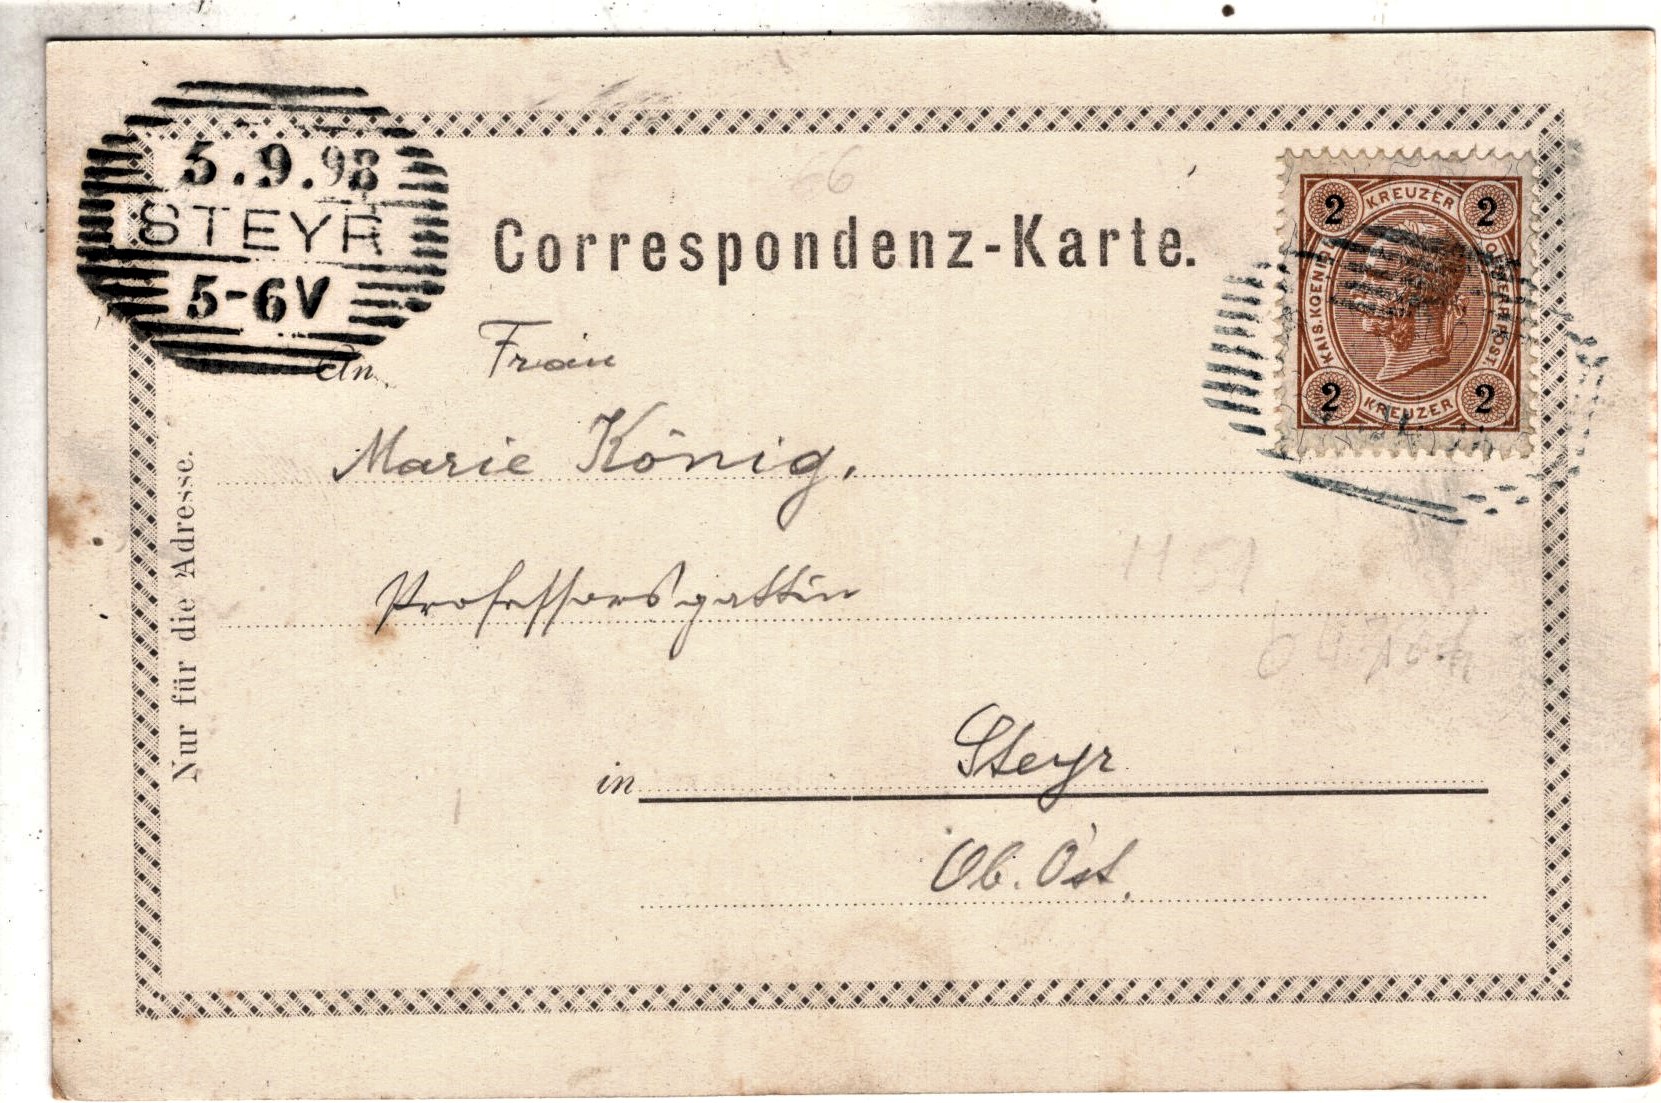 5.9.98
STEYR
5-6V
Correspondenz-Karte.
KREUZER
2
2
KAIS. KOENIGL.
OESTERR. POST.
2
2
KREUZER
An
Frau
Marie König,
Professorsgattin
Nur für die Adresse.
in Steyr
Ob. Öst.